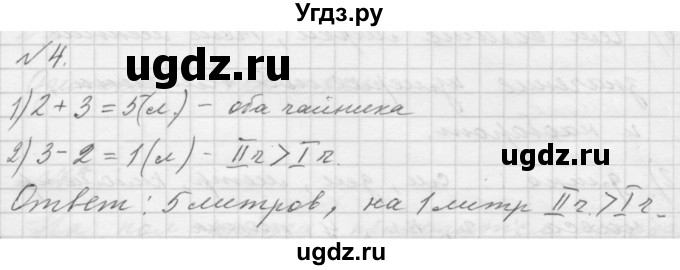 Угдз.ру
ugdz.ru
№4.
ugdz.ru
1) 2 + 3 = 5(л.) – оба чайника
2) 3 - 2 = 1(л) – II ч. > I ч.
Ответ: 5 литров, на 1 литр II ч. > I ч.
ugdz.ru
ugdz.ru